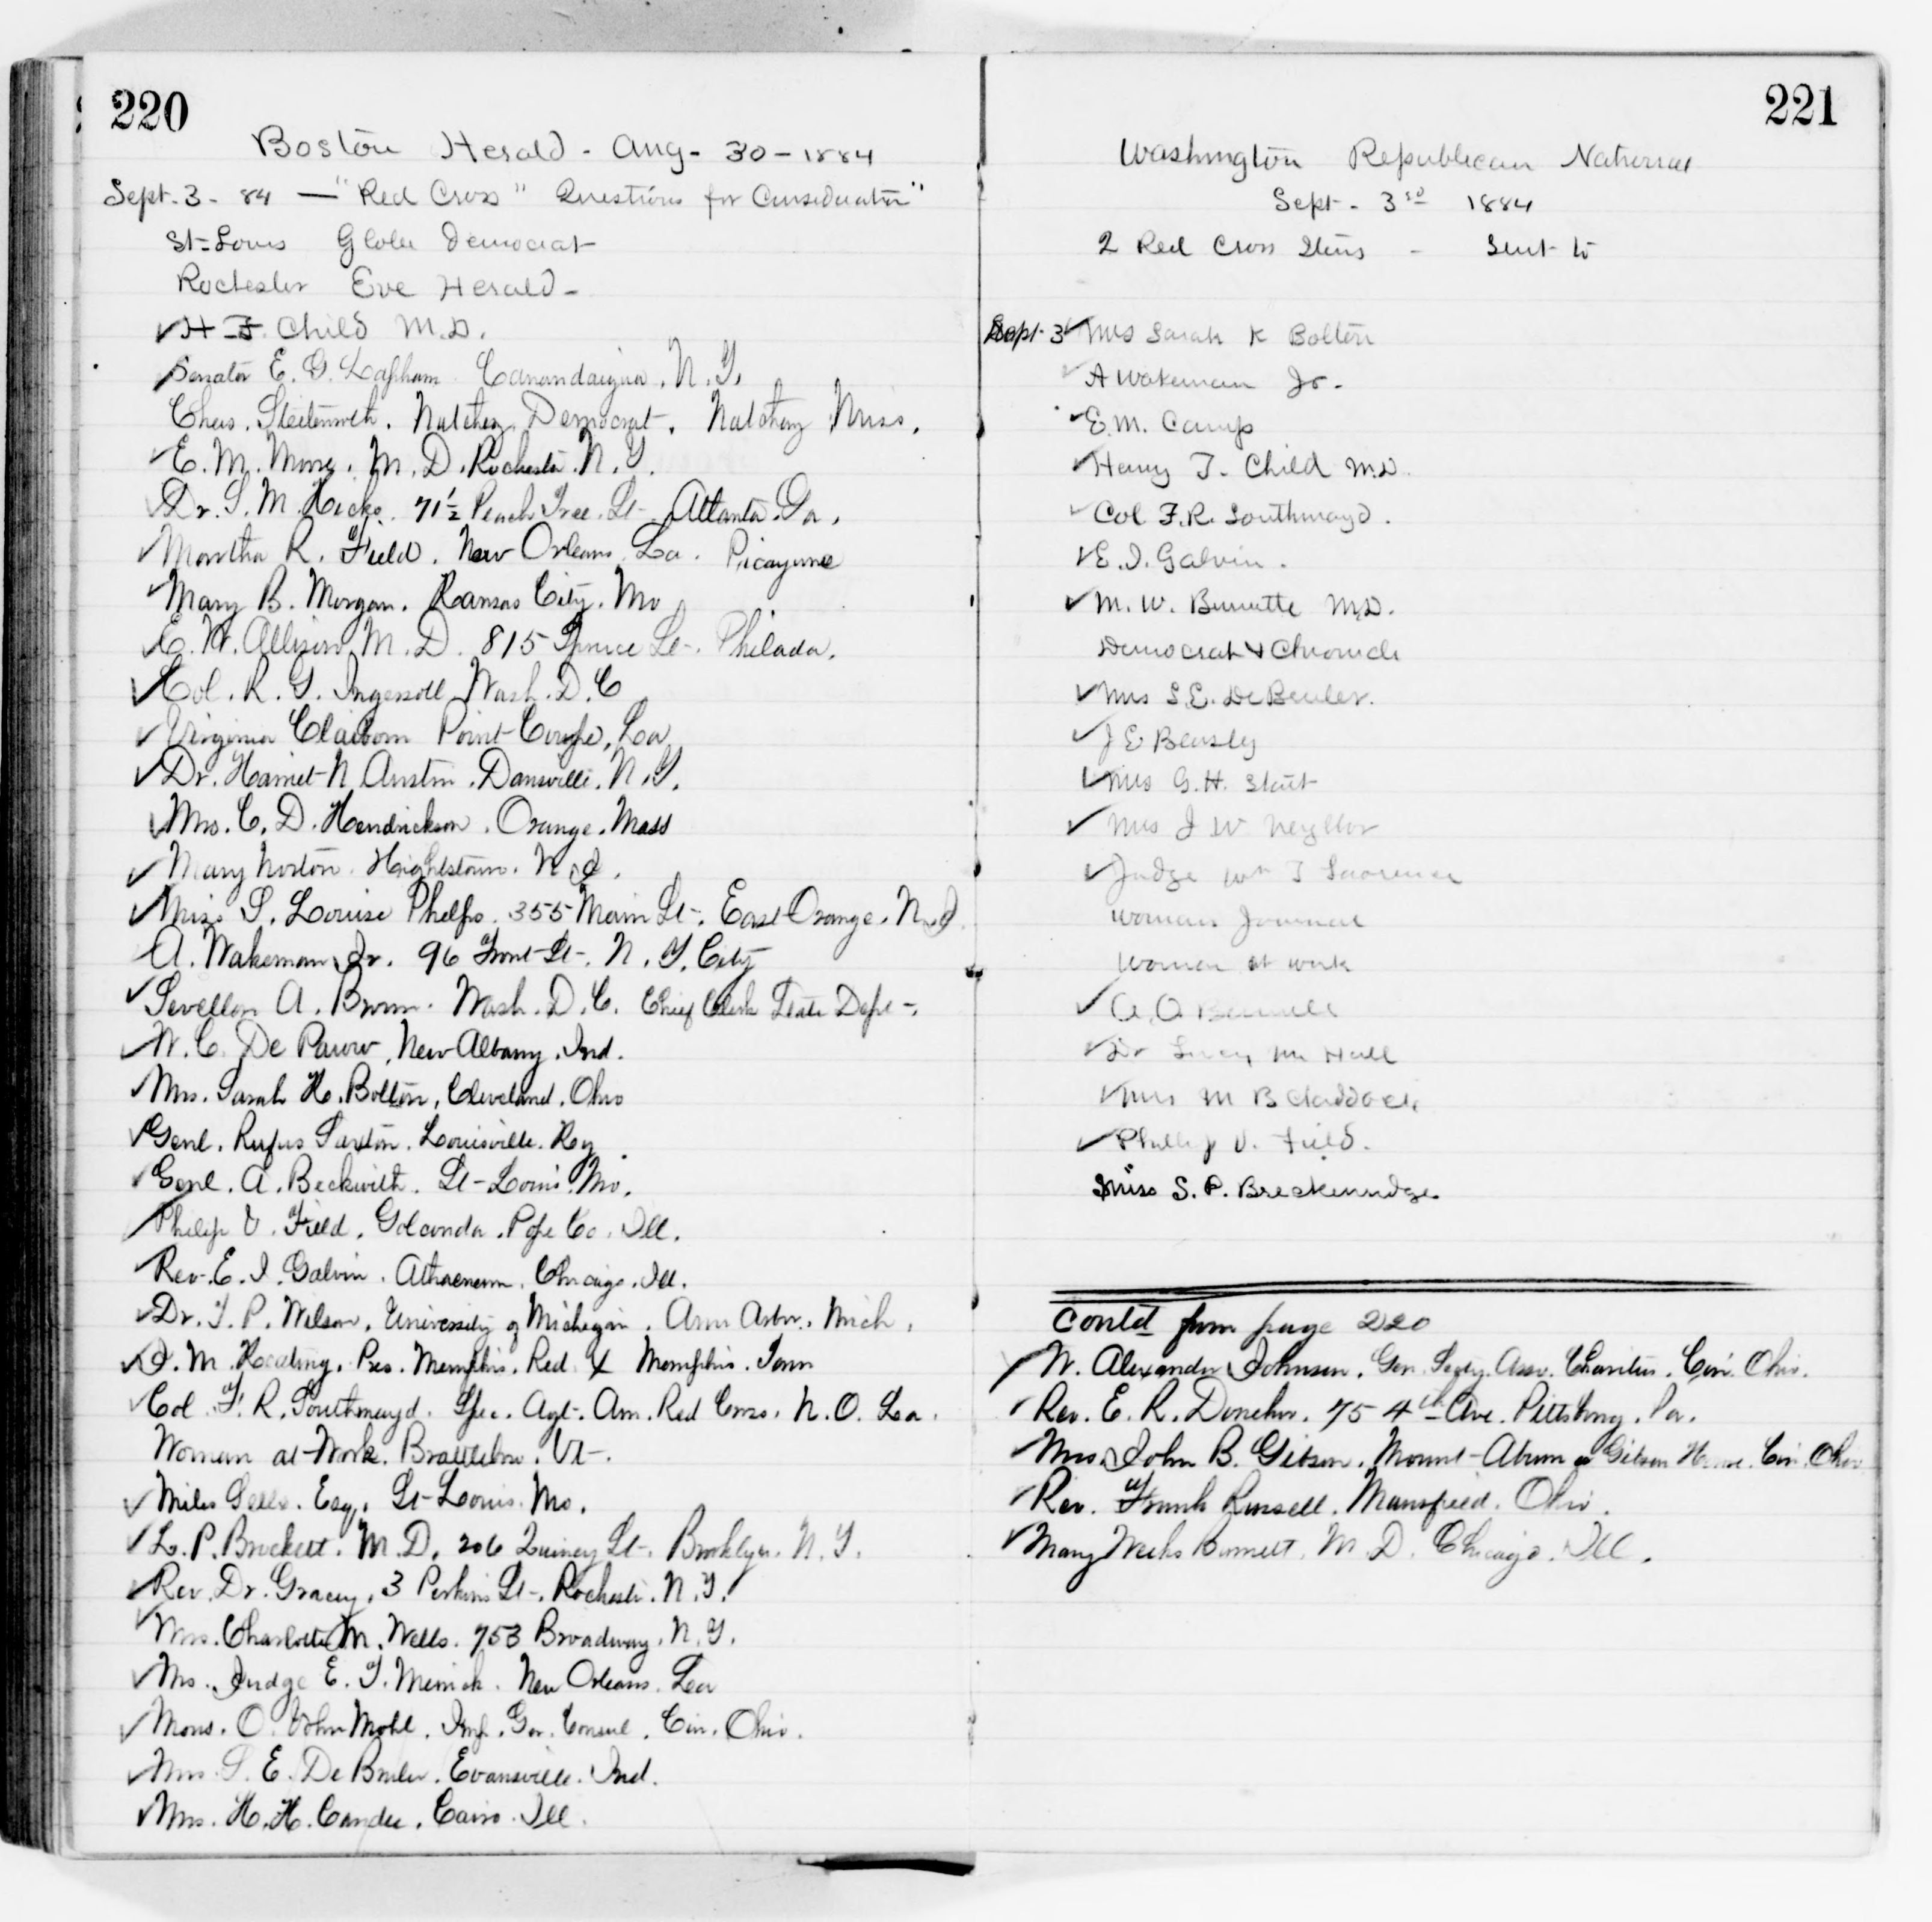 220
Boston Herald - Aug - 30 - 1884
Sept. 3 - 84 — "Red Cross" Questions for Consideration"
St-Louis Globe Democrat
Rochester Eve Herald -
✓ H T. Child M.D.
✓ Senator E. G. Lapham. Canandaigua, N.Y.
Chas. Natchez Democrat. Natchez Miss.
✓ E. M. Moore. M. D. Rochester. N. Y.
✓ Dr. S. M. Hicks. 71½ Peach Tree. St- Atlanta. Ga.
✓ Martha R. Field. New Orleans, La. Picayune
✓ Mary B. Morgan. Kansas City. Mo
✓ E. W. Allison. M. D. 815 Spruce St-. Philada.
✓ Col. R. G. Ingersoll Wash. D. C
✓ Virginia Claiborn Point-Coupe, La
✓ Dr. Harriet-N Austin. Dansville. N.Y.
✓ Mrs. C. D. Hendrickson. Orange. Mass
✓ Mary Norton. Hightstown. N. J.
✓ Miss S. Louise Phelps. 355 Main St-. East-Orange. N. J
A. Wakeman Jr. 96 Front-St-. N. Y. City
✓ Sevellon A. Brown. Wash. D. C. Chief Clerk State Dept-.
✓ W. C. De Pauw, New Albany. Ind.
✓ Mrs. Sarah K. Bolton, Cleveland. Ohio
✓ Genl. Rufus Saxton. Louisville. Ky.
✓ Genl. A. Beckwith. St-Louis. Mo.
✓ Philip V. Field. Golconda. Pope Co. Ill.
Rev. E. I. Galvin. Athaeneum. Chicago. Ill.
✓ Dr. T. P. Wilson. University of Michigan. Ann Arbor. Mich.
✓ J. M. Keating. Pres. Memphis. Red X Memphis. Tenn
✓ Col. F. R. Southmayd. Spec. Agt-. Am. Red Cross. N. O. La.
Woman at-Work. Brattleboro. Vt-.
✓ Miles Sells. Esq. St-Louis. Mo.
✓ L. P. Brockett. M. D. 206 Quincy St-. Brooklyn. N. Y.
✓ Rev. Dr. Gracey. 3 Perkins St-. Rochester. N. Y.
✓ Mrs. Charlotte M. Wells. 753 Broadway. N. Y.
✓ Mrs. Judge E. T. Merrick. New Orleans. La
✓ Mons. O. John Mohl. Imp. Ger. Consul. Cin. Ohio.
✓ Mrs. S. E. De Bruler. Evansville. Ind.
✓ Mrs. H. H. Candee. Cairo. Ill.
221
Washington Republican National
Sept - 3rd 1884
2 Red Cross Items - Sent to
Sept. 3 ✓ Mrs Sarah K Bolton
✓ A Wakeman Jr.
✓ E. M. Camp
✓ Henry T. Child M.D.
✓ Col F. R. Southmayd.
✓ E. I. Galvin.
✓ M. W. Burnette M.D.
Democrat & Chronicle
✓ Mrs S. E. De Bruler.
✓ J E Beasly
✓ Mrs G. H. Stout
✓ Mrs J W Neyllor
✓ Judge Wm T Lawrence
Womans Journal
Woman at work
✓ A. O. Bunnell
✓ Dr Lucy M Hall
✓ Mrs M B Claddock
✓ Phillip V. Field.
Miss S. P. Breckenridge.
Contd from page 220
✓ W. Alexander Johnson. Gen. Secty. Asso. Charities. Cin. Ohio.
✓ Rev. E. R. Donehoo. 75 4th Ave. Pittsburg. Pa.
✓ Mrs. John B. Gibson. Mount-Auburn or Gibson House. Cin. Ohio
✓ Rev. Frank Russell. Mansfield. Ohio.
✓ Mary Weeks Burnett. M. D. Chicago. Ill.